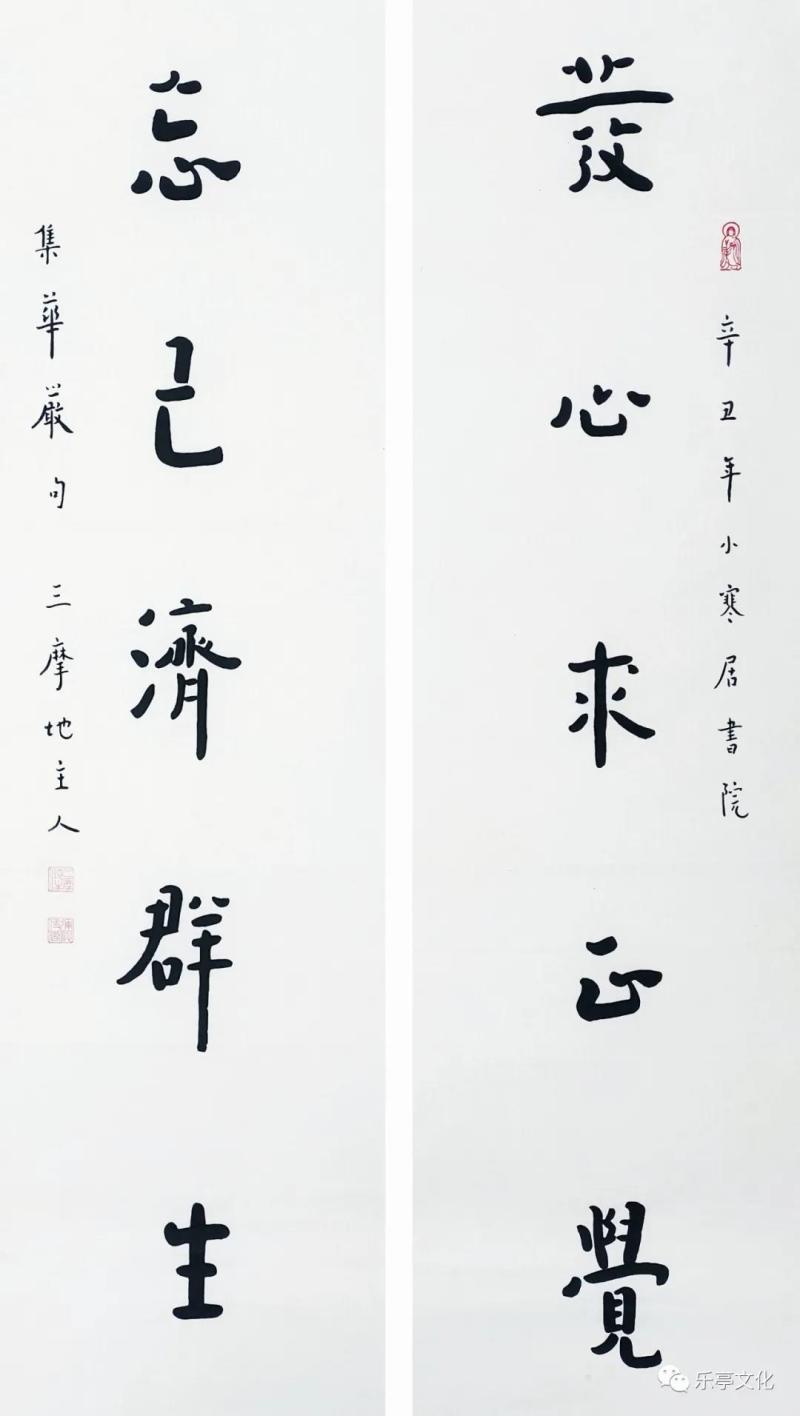 發心求正覺
辛丑年小寒居書院
忘己濟群生
集華嚴句 三摩地主人
乐亭文化